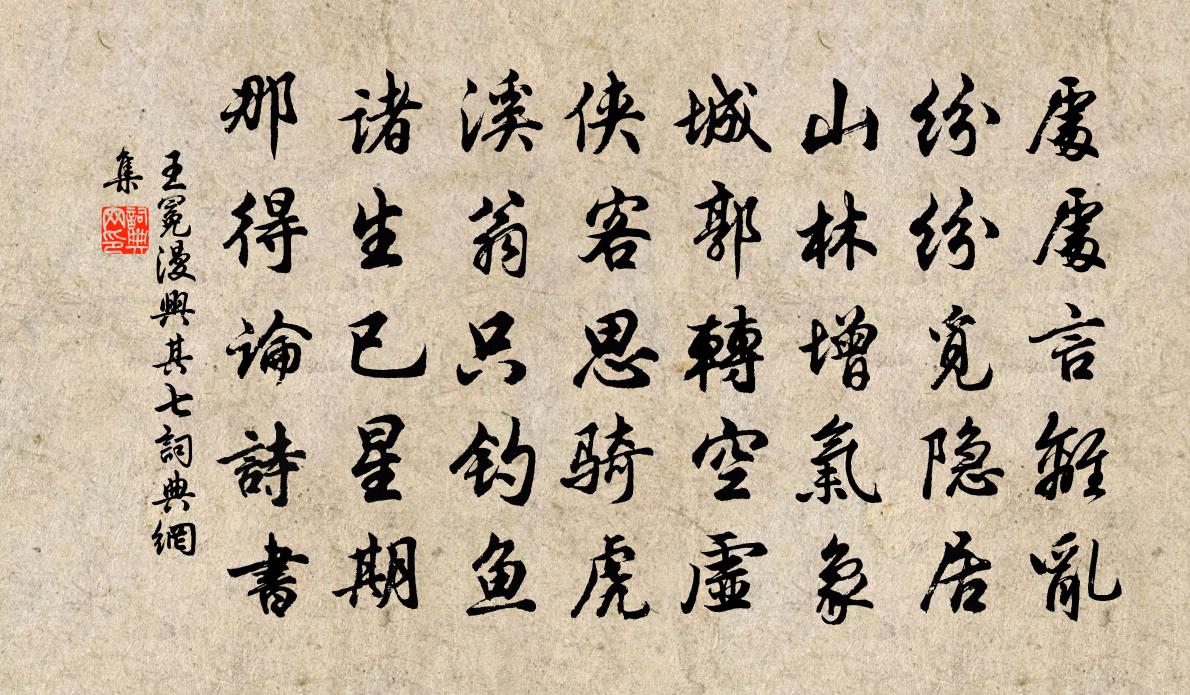 處處言離亂
紛紛覓隐居
山林增氣象
城郭轉空虛
侠客思骑虎
溪翁只钓鱼
诸生已星期
那得論詩書
王冕漫興其七詞典網
集
詞典
网印